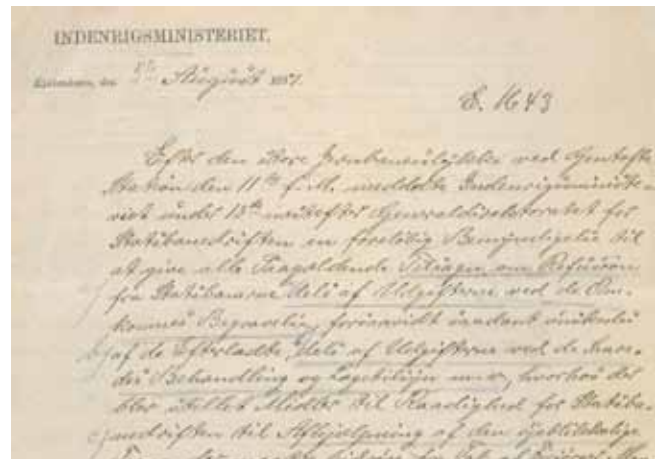 INDENRIGSMINISTERIET.
Kjøbenhavn, den 5te August 1897.
E. 1643
Efter den store Jernbaneulykke ved Gentofte
Station den 11te f. M. meddelte Indenrigsministe-
riet under 13de næstefter Generaldirektoratet for
Statsbanedriften en foreløbig Bemyndigelse til
at give alle Paagældende Tilsagn om Refusion
fra Statsbanerne dels af Udgifterne ved de Om-
komnes Begravelse, forsaavidt saadant ønskedes
af de Efterladte, dels af Udgifterne ved de Saare-
des Behandling og Lægetilsyn m. v., hvorhos der
blev stillet Midler til Raadighed for Statsba-
nedriften til Afhjælpning af den øjeblikkelige